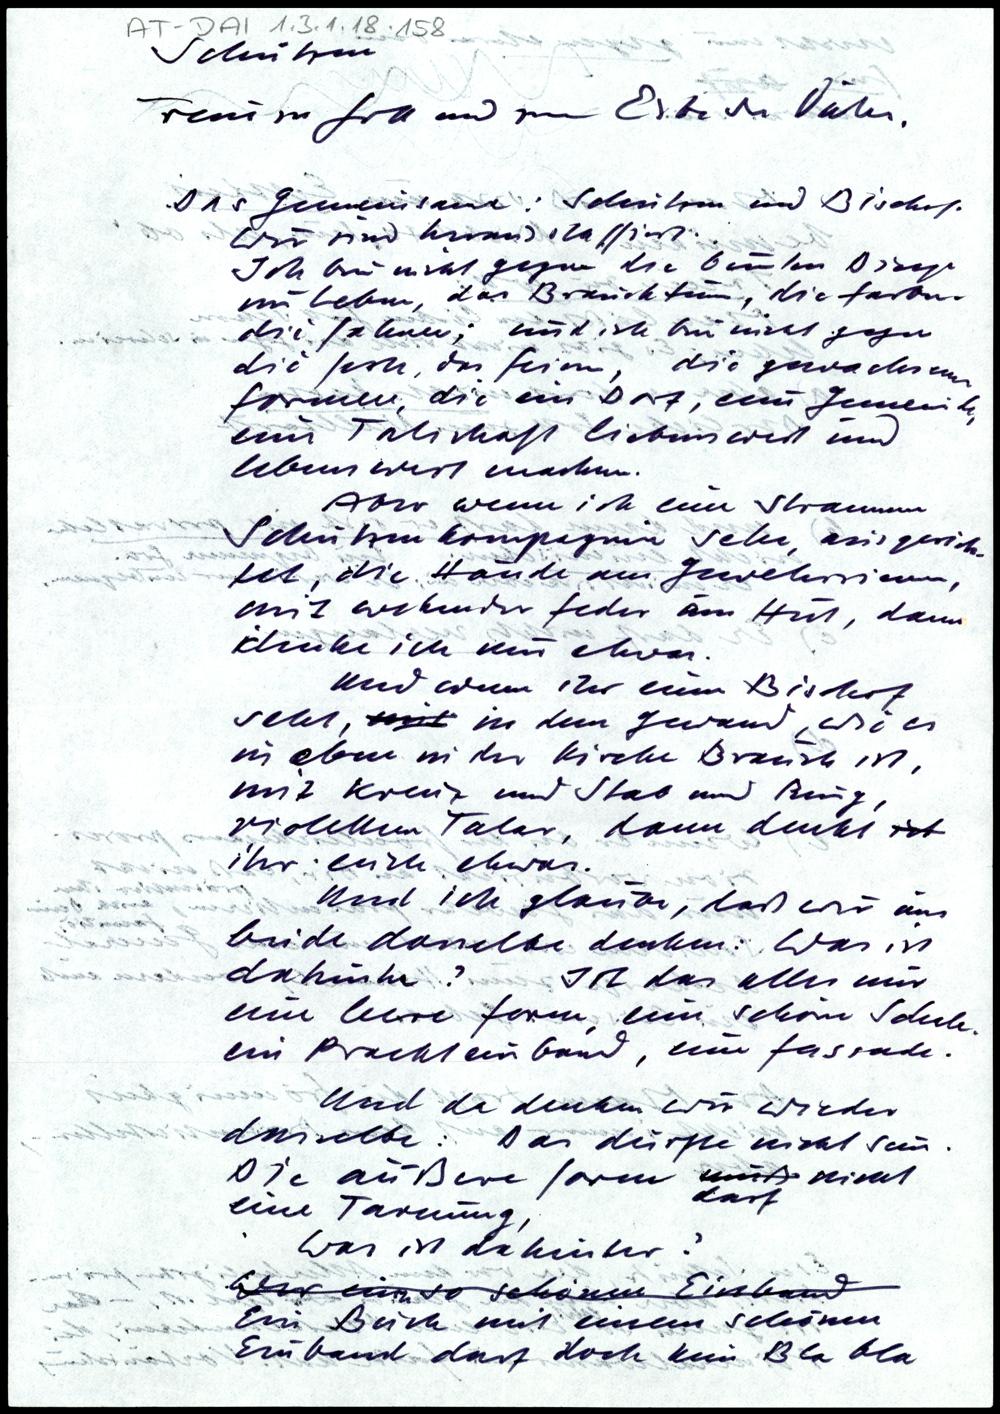 AT-DAI 1.3.1.18.158
Schützen
Treue zu Gott und zum Erbe der Väter.
Das Gemeinsame: Schützen und Bischof.
Wir sind herausstaffiert.
Ich bin nicht gegen die bunten Dinge
im Leben, das Brauchtum, die Farben
die Fahnen; und ich bin nicht gegen
die Feste, das Feiern, die gewachsenen
Formen, die ein Dorf, eine Gemeinde,
eine Talschaft liebenswert und
lebenswert machen.
Aber wenn ich eine stramme
Schützenkompagnie sehe, ausgerich-
tet, die Hände am Gewehrriemen,
mit wehender Feder am Hut, dann
denke ich mir etwas.
Und wenn ihr einen Bischof
seht, mit in dem Gewand, wie es
eben in der Kirche Brauch ist,
mit Kreuz und Stab und Ring,
violettem Talar, dann denkt
ihr euch etwas.
Und ich glaube, daß wir uns
beide dasselbe denken: Was ist
dahinter? Ist das alles nur
eine leere Form, eine schöne Schale.
ein Prachteinband, eine Fassade.
Und da denken wir wieder
dasselbe: Das dürfte nicht sein.
Die äußere Form muß nicht
darf
eine Tarnung,
Was ist dahinter?
Wer ein so schönen Einband
Ein Buch mit einem schönen
Einband darf doch kein Bla bla